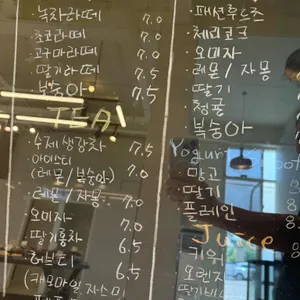 녹차라떼 7.0
초코라떼 7.0
고구마라떼 7.0
딸기라떼 7.5
복숭아 7.5
TEA
수제 생강차 7.5
아이스티
(레몬/복숭아) 7.0
레몬/자몽 7.0
오미자 7.0
딸기홍차 6.5
허브티 6.5
(캐모마일, 자스미
패션후르츠
체리코크
오미자
레몬/자몽
딸기
청귤
복숭아
Yogurt
망고
딸기
플레인
Juice
키위
오렌지